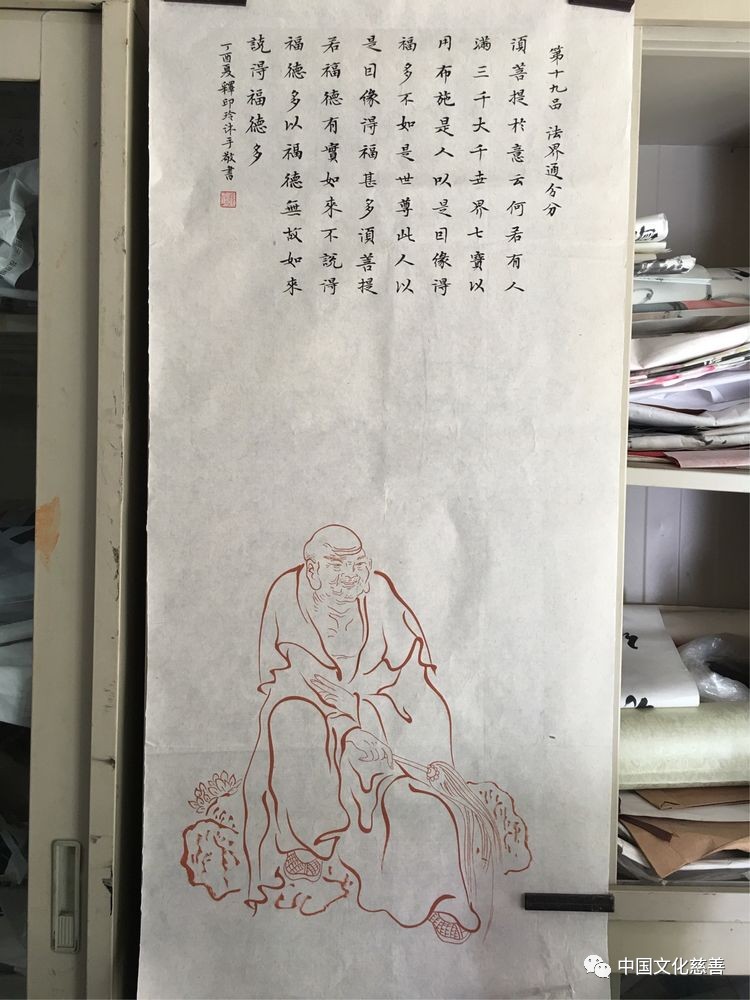 第十九品 法界通分分
須菩提於意云何若有人
滿三千大千世界七寶以
用布施是人以是因緣得
福多不如是世尊此人以
是因緣得福甚多須菩提
若福德有實如來不說得
福德多以福德無故如來
說得福德多
丁酉夏釋印玲沐手敬書
中国文化慈善